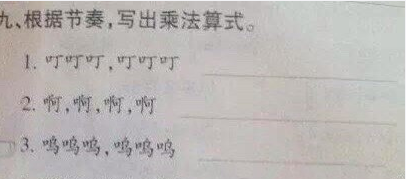 九、根据节奏,写出乘法算式。
1. 叮叮叮,叮叮叮
2. 啊,啊,啊,啊
3. 呜呜呜,呜呜呜